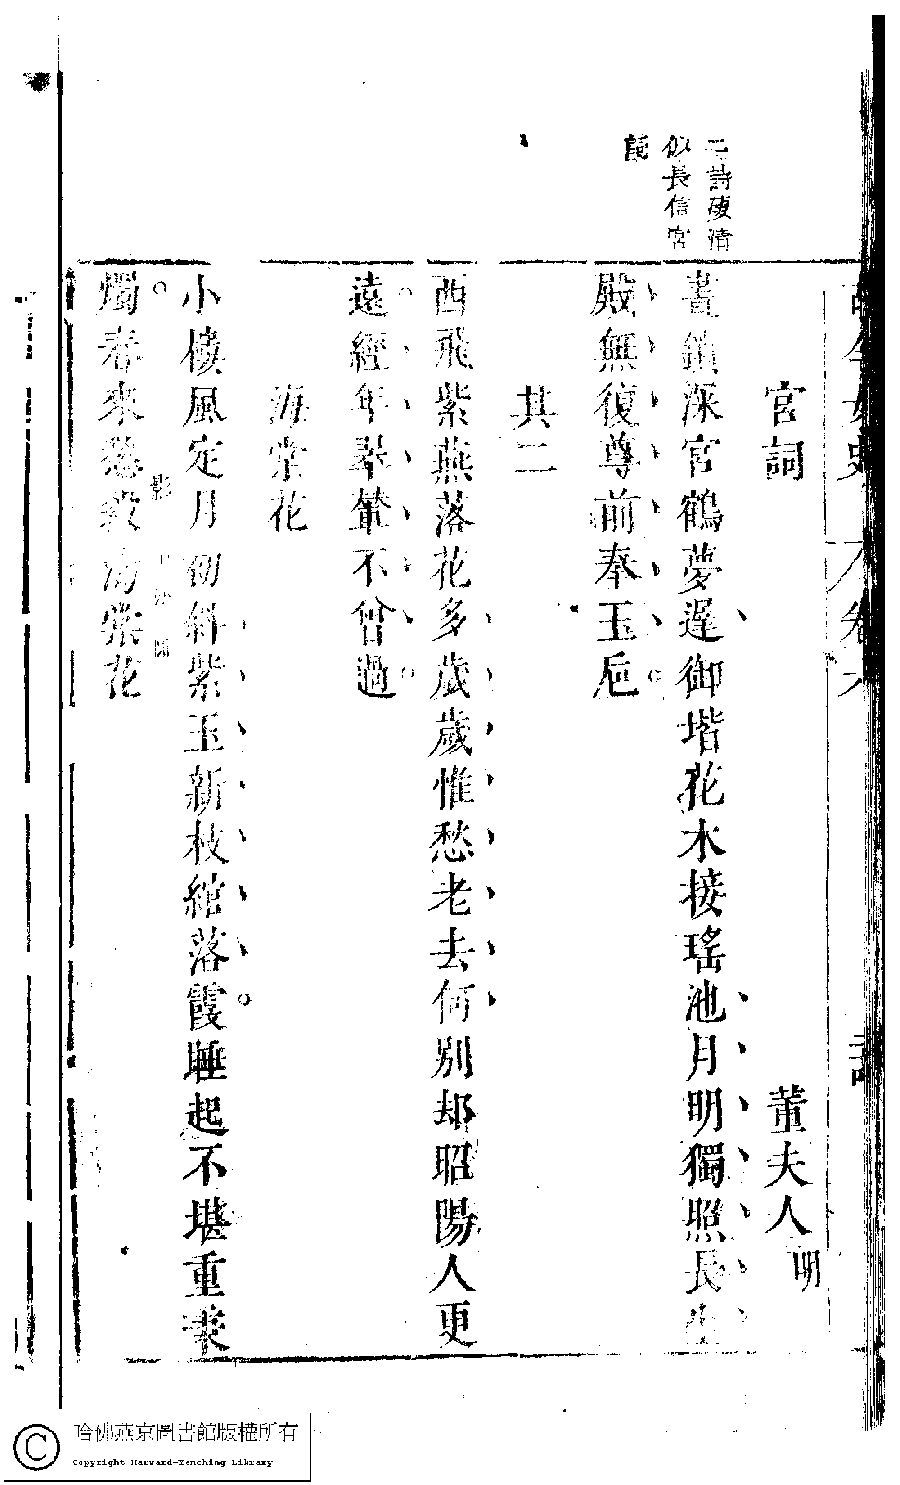 古今女史
卷六
詩
二詩凄清
似長信宮
詞
宮詞
董夫人明
晝鎖深宮鶴夢遲御堦花木接瑤池月明獨照長生
殿無復尊前奉玉巵
其二
西飛紫燕落花多歲歲惟愁老去何別却昭陽人更
遠經年翠輦不曾過
海棠花
小樓風定月初斜紫玉新枝綰落霞睡起不堪重秉
燭春來愁殺海棠花
哈佛燕京圖書館版權所有
Copyright Harvard-Yenching Library